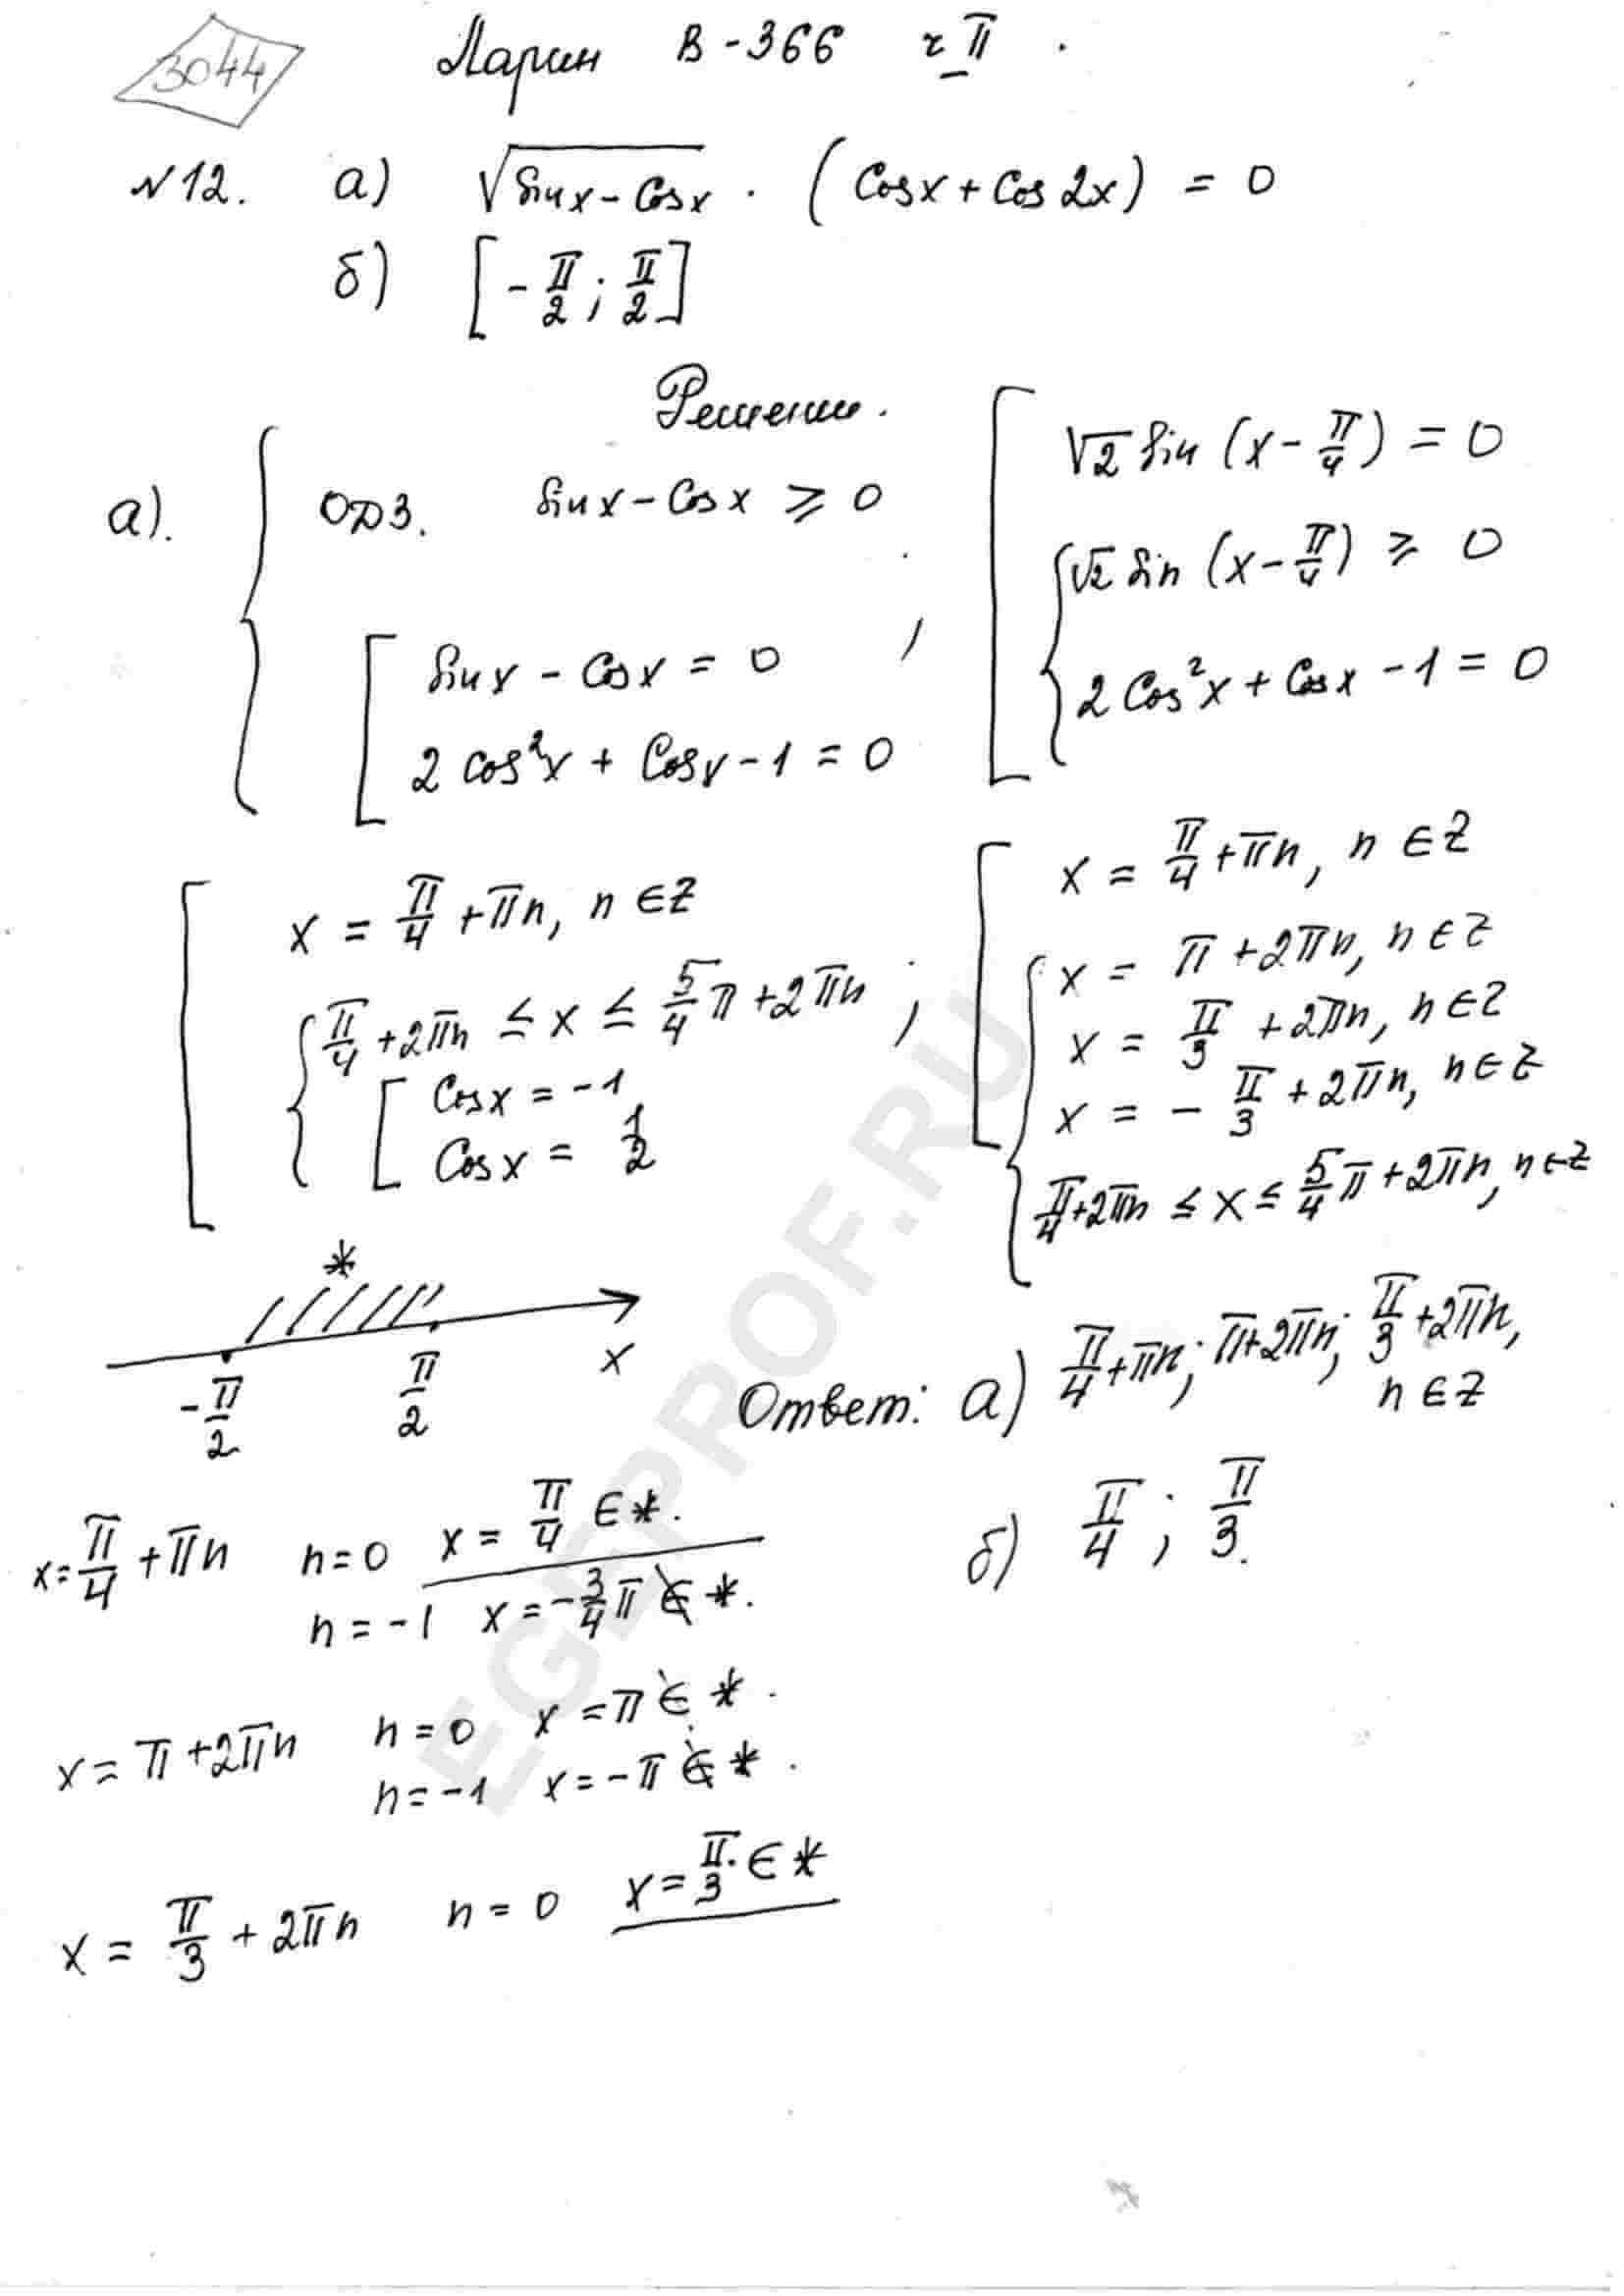 3044
Ларин В-366 ч II.
№12. а) √(sin x - Cos x) · (Cos x + Cos 2x) = 0
б) [-π/2; π/2]
Решение.
а). { ОДЗ. sin x - Cos x ≥ 0
[ sin x - Cos x = 0
2 cos²x + Cos x - 1 = 0 ,
[ √2 sin (x - π/4) = 0
{ √2 sin (x - π/4) ≥ 0
2 Cos²x + Cos x - 1 = 0
[ x = π/4 + πn, n ∈ Z
{ π/4 + 2πn ≤ x ≤ 5/4 π + 2πn ;
[ Cos x = -1
Cos x = 1/2
[ x = π/4 + πn, n ∈ Z
{ x = π + 2πn, n ∈ Z
x = π/3 + 2πn, n ∈ Z
x = - π/3 + 2πn, n ∈ Z
π/4 + 2πn ≤ x ≤ 5/4 π + 2πn, n ∈ Z
*
-π/2 π/2 x
Ответ: а) π/4 + πn; π + 2πn; π/3 + 2πn,
n ∈ Z
б) π/4 ; π/3.
x = π/4 + πn n = 0 x = π/4 ∈ *.
n = -1 x = -3/4 π ∉ *.
x = π + 2πn n = 0 x = π ∉ *.
n = -1 x = -π ∉ *.
x = π/3 + 2πn n = 0 x = π/3 ∈ *
EGEPROF.RU